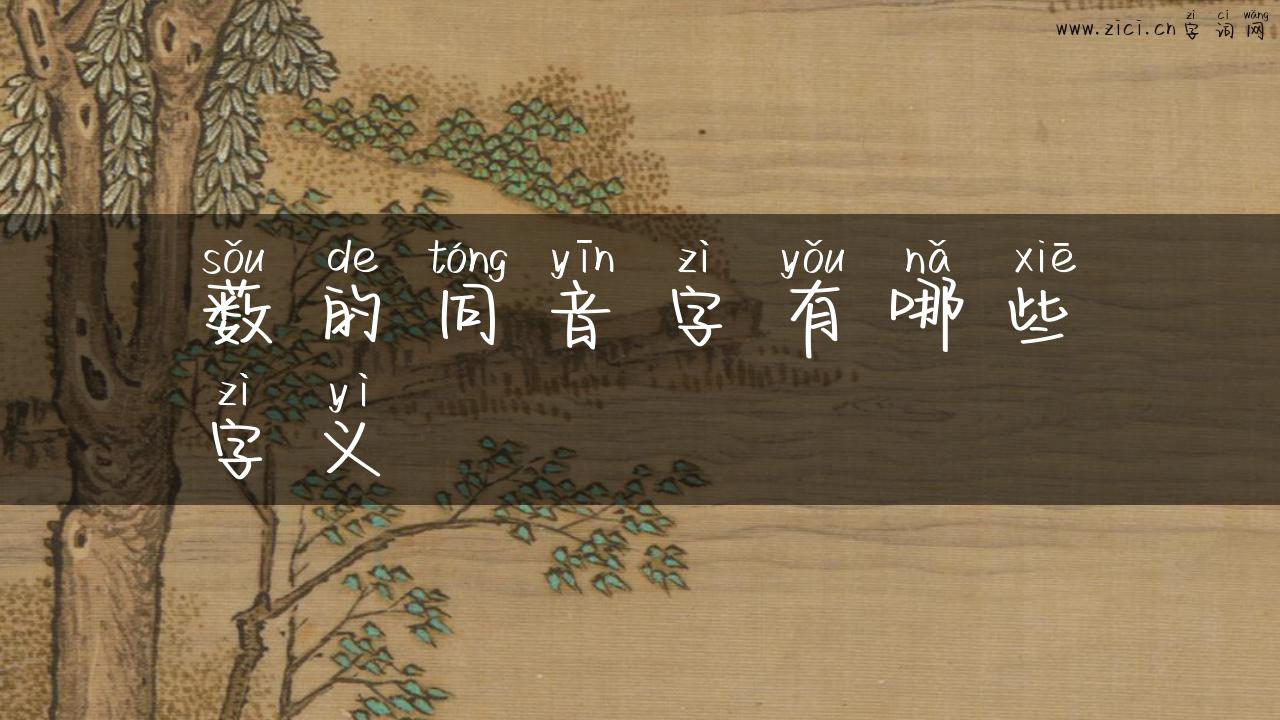 www.zici.cn zì cí wǎng
字词网
sǒu de tóng yīn zì yǒu nǎ xiē
薮的同音字有哪些
zì yì
字义